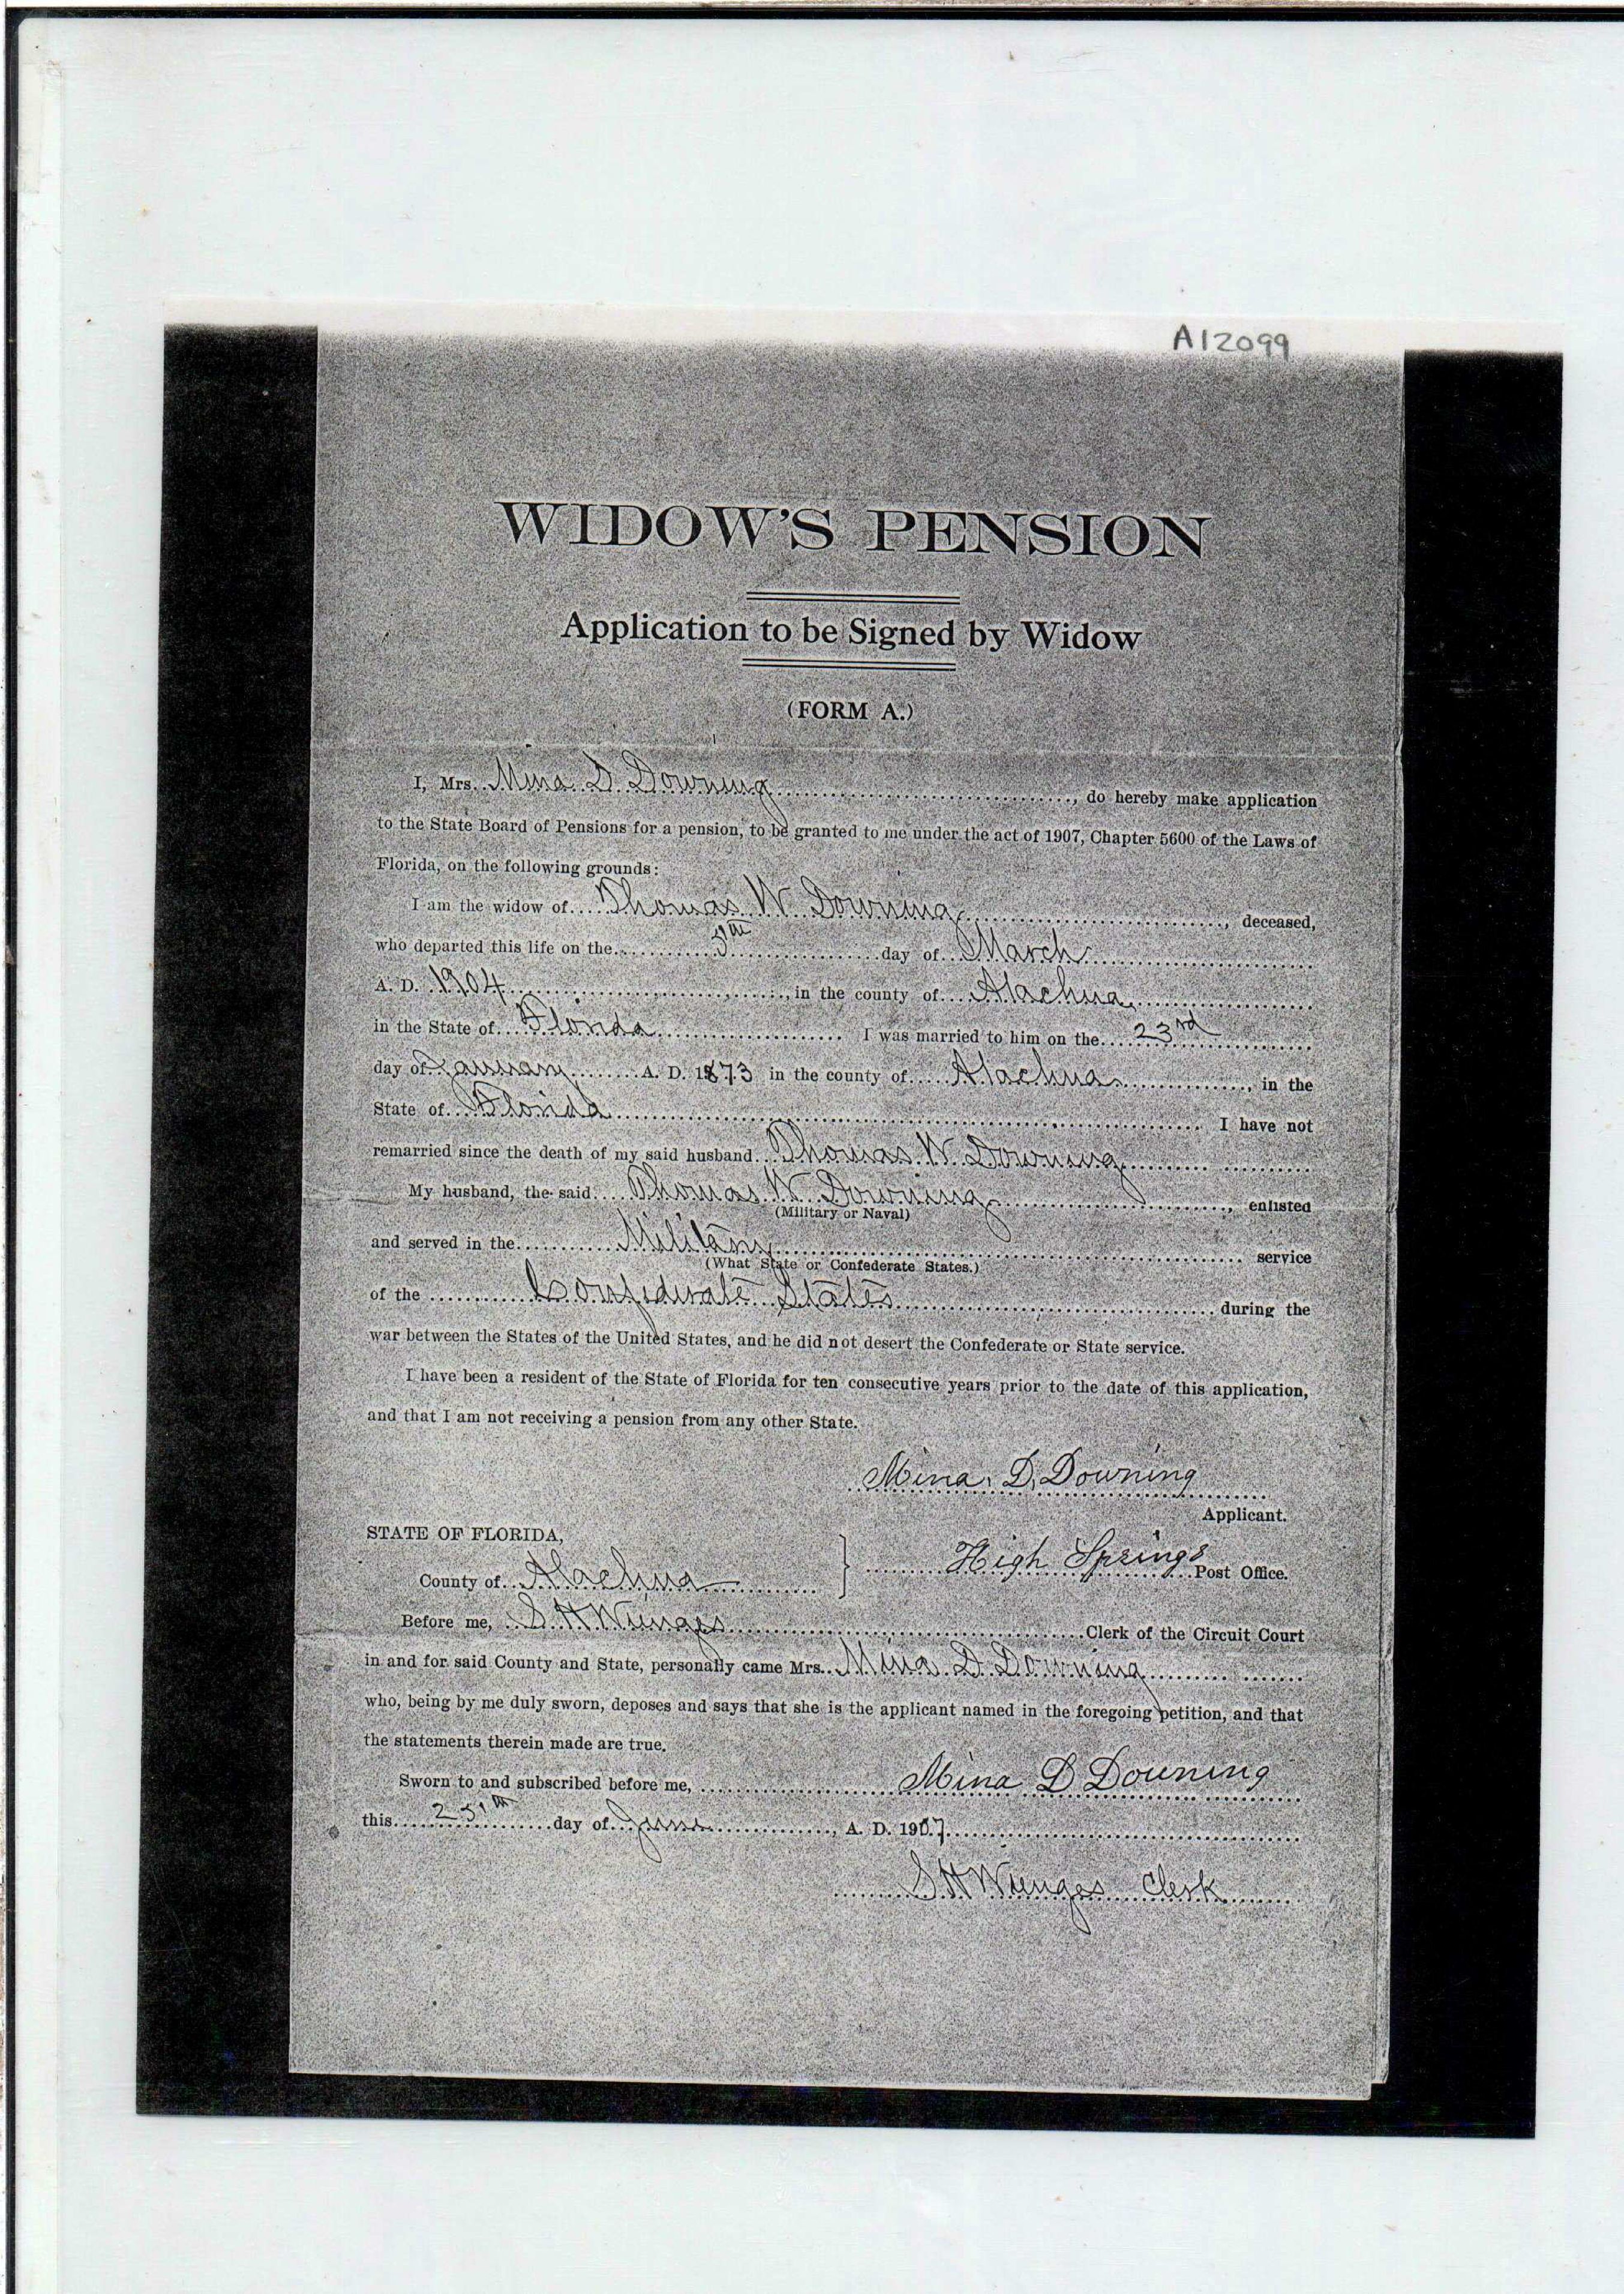 A12099
WIDOW'S PENSION
Application to be Signed by Widow
(FORM A.)
I, Mrs. Mina D. Downing, do hereby make application
to the State Board of Pensions for a pension, to be granted to me under the act of 1907, Chapter 5600 of the Laws of
Florida, on the following grounds:
I am the widow of Thomas W. Downing, deceased,
who departed this life on the 5th day of March
A. D. 1904, in the county of Alachua
in the State of Florida I was married to him on the 23rd
day of January A. D. 1873 in the county of Alachua, in the
State of Florida. I have not
remarried since the death of my said husband Thomas W. Downing
My husband, the said Thomas W Downing, enlisted
(Military or Naval)
and served in the Military service
(What State or Confederate States.)
of the Confederate States during the
war between the States of the United States, and he did not desert the Confederate or State service.
I have been a resident of the State of Florida for ten consecutive years prior to the date of this application,
and that I am not receiving a pension from any other State.
Mina. D. Downing
Applicant.
STATE OF FLORIDA,
County of Alachua
High Springs Post Office.
Before me, S. H. Wienges Clerk of the Circuit Court
in and for said County and State, personally came Mrs. Mina D. Downing
who, being by me duly sworn, deposes and says that she is the applicant named in the foregoing petition, and that
the statements therein made are true.
Sworn to and subscribed before me, Mina D Downing
this 25th day of June, A. D. 1907
S H Wienges Clerk